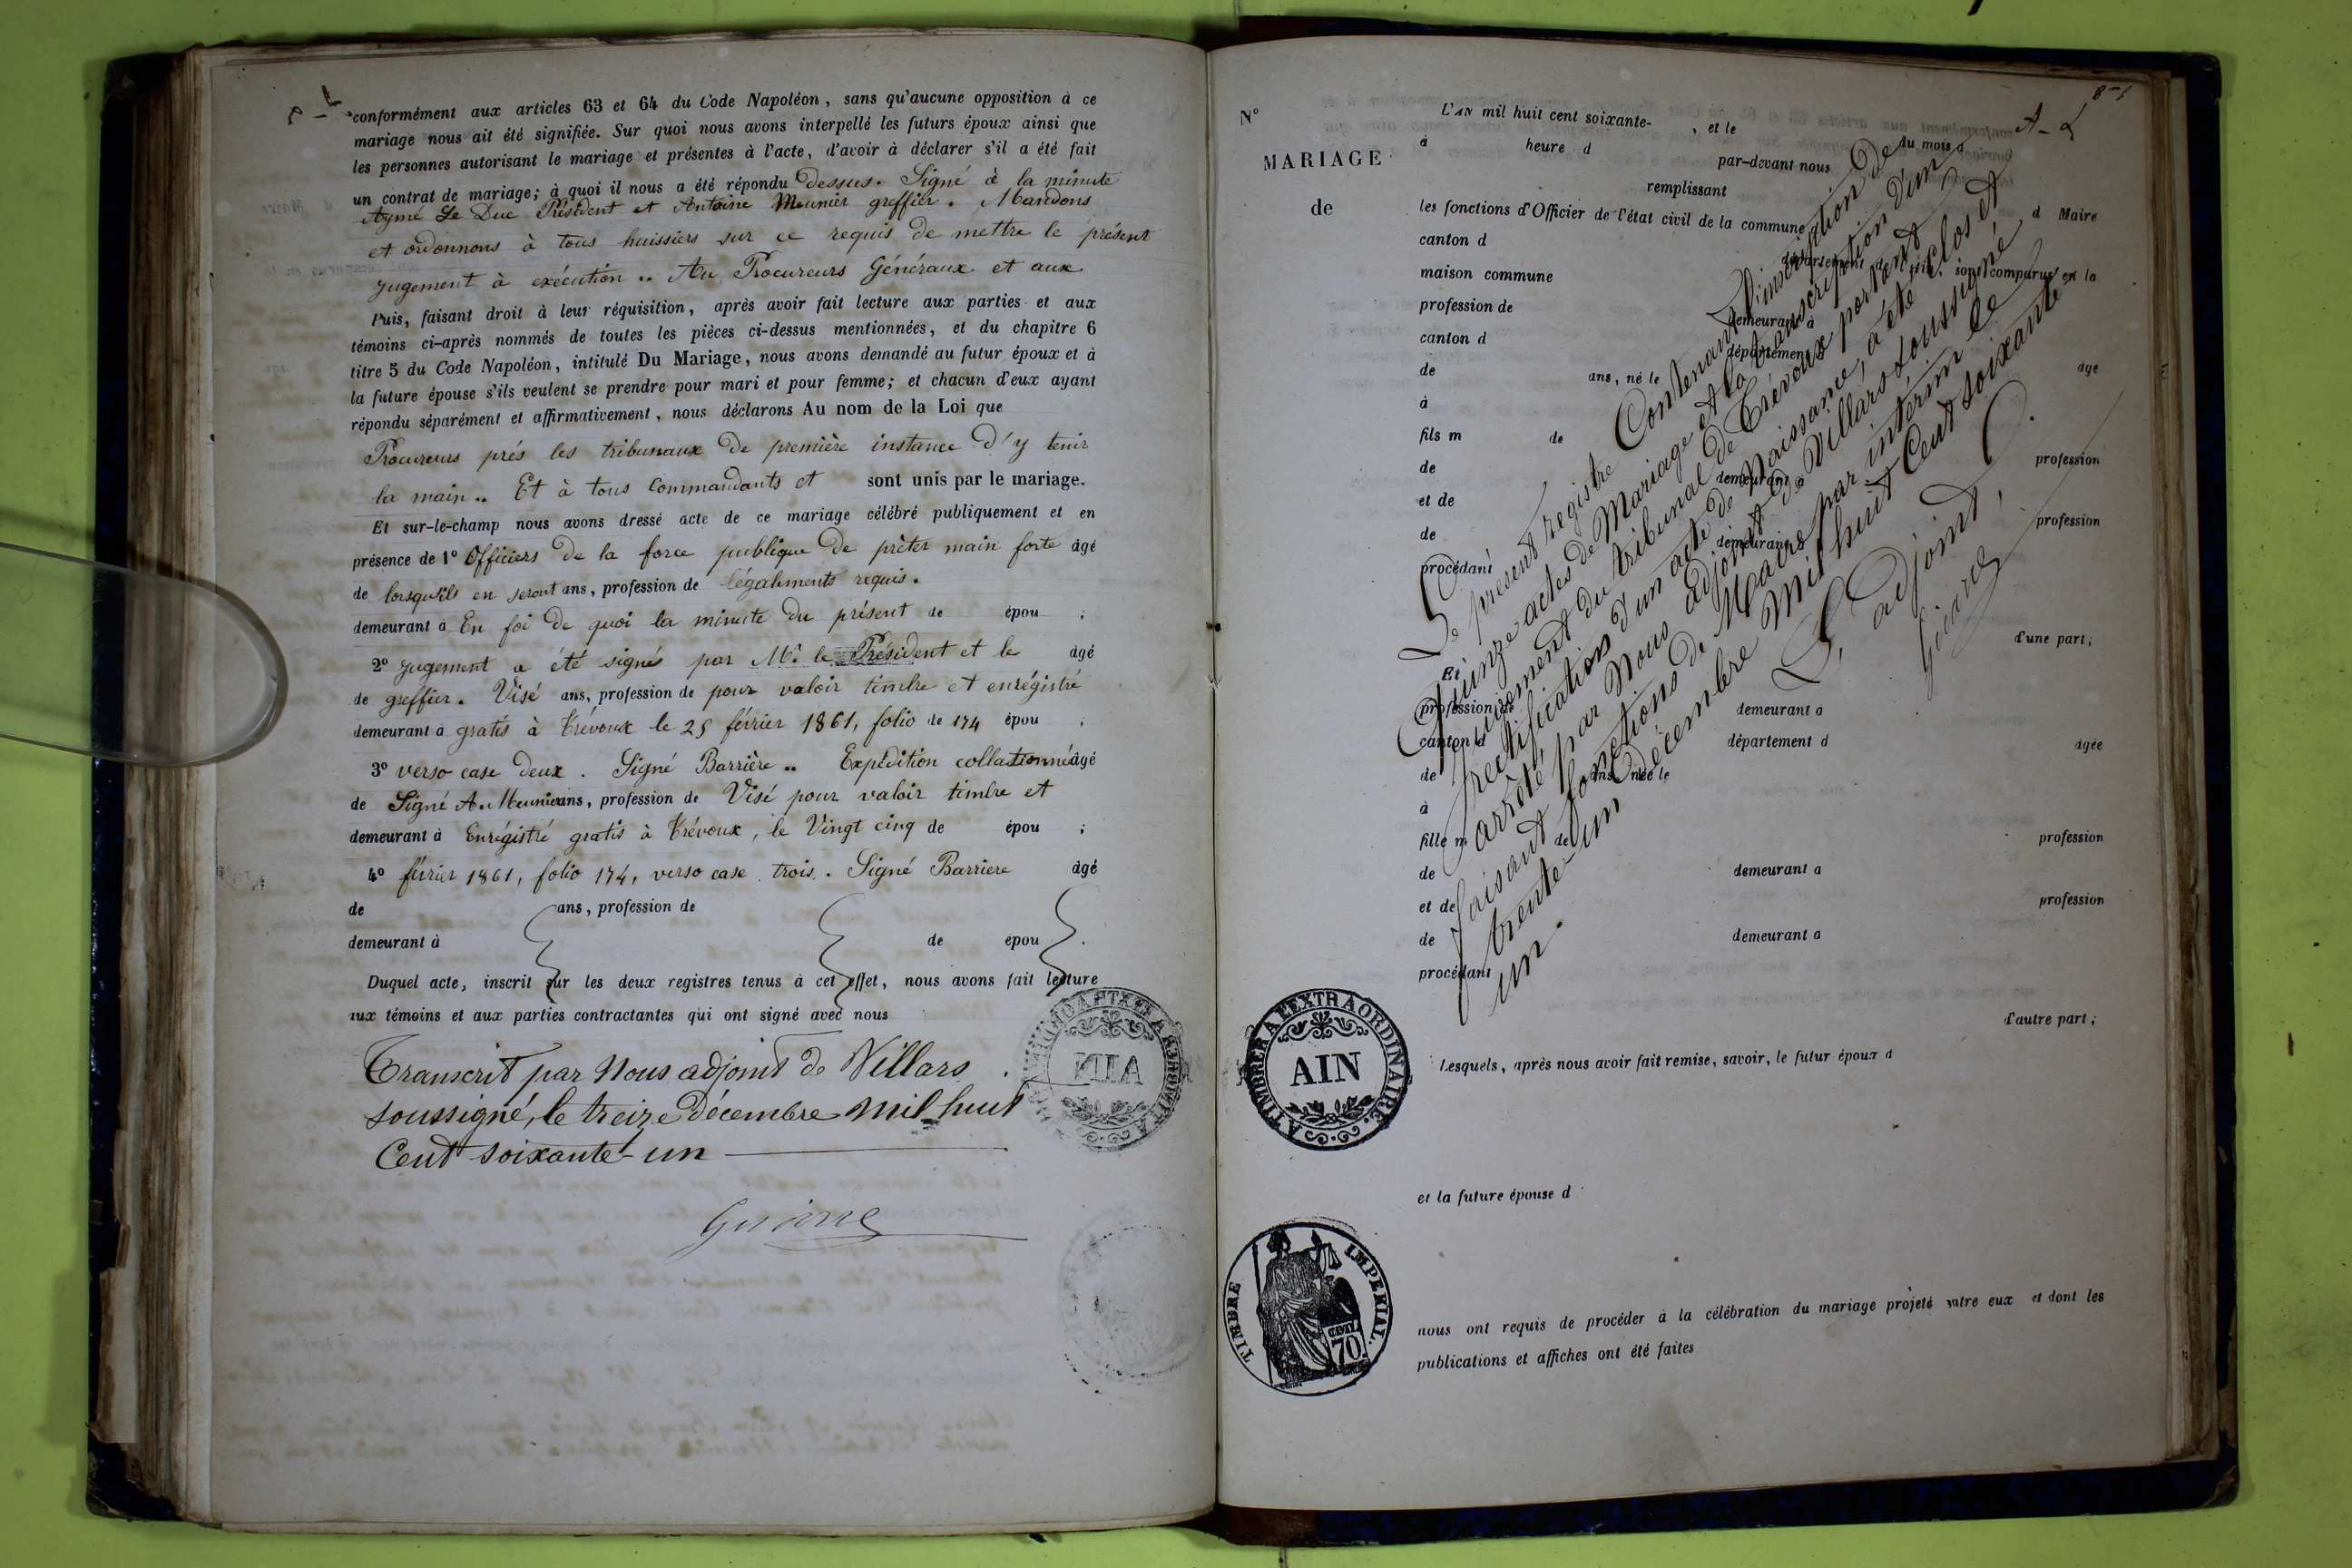 conformément aux articles 63 et 64 du Code Napoléon, sans qu'aucune opposition à ce
mariage nous ait été signifiée. Sur quoi nous avons interpellé les futurs époux ainsi que
les personnes autorisant le mariage et présentes à l'acte, d'avoir à déclarer s'il a été fait
un contrat de mariage; à quoi il nous a été répondu dessus. Signé à la minute
Aymé Le Duc Président et Antoine Meunier greffier. Mandons
et ordonnons à tous huissiers sur ce requis de mettre le présent
jugement à exécution.. Au Procureurs Généraux et aux
Puis, faisant droit à leur réquisition, après avoir fait lecture aux parties et aux
témoins ci-après nommés de toutes les pièces ci-dessus mentionnées, et du chapitre 6
titre 5 du Code Napoléon, intitulé Du Mariage, nous avons demandé au futur époux et à
la future épouse s'ils veulent se prendre pour mari et pour femme; et chacun d'eux ayant
répondu séparément et affirmativement, nous déclarons Au nom de la Loi que
Procureurs prés les tribunaux de première instance d'y tenir
la main.. Et à tous Commandants et sont unis par le mariage.
Et sur-le-champ nous avons dressé acte de ce mariage célébré publiquement et en
présence de 1° Officiers de la force publique de prêter main forte âgé
de lorsqu'ils en seront ans, profession de légalements requis.
demeurant à En foi de quoi la minute du présent de épou ;
2° jugement a été signés par Mr. le Président et le âgé
de greffier. Visé ans, profession de pour valoir timbre et enrégistré
demeurant à gratis à Trévoux le 25 février 1861, folio de 174 épou ;
3° verso case deux. Signé Barrière.. Expédition collationnée âgé
de Signé An Meunier ans, profession de Visé pour valoir timbre et
demeurant à Enrégistré gratis à Trévoux, le Vingt cinq de épou ;
4° février 1861, folio 174, verso case trois. Signé Barriere âgé
de ans, profession de
demeurant à de épou .
Duquel acte, inscrit sur les deux registres tenus à cet effet, nous avons fait lecture
aux témoins et aux parties contractantes qui ont signé avec nous
Transcrit par Nous adjoint de Villars
soussigné, le treize décembre mil huit
Cent soixante-un
N°
MARIAGE
de
A TIMBRER A L'EXTRAORDINAIRE.
AIN
TIMBRE IMPERIAL.
70
L'AN mil huit cent soixante- , et le du mois d
à heure d par-devant nous
remplissant
les fonctions d'Officier de l'état civil de la commune d Maire
canton d département d sont comparus en la
maison commune
profession de demeurant à
canton d département
de ans, né le âgé
à
fils m de
de demeurant à profession
et de
de demeurant à profession
procédant
d'une part;
Et
profession d demeurant à
canton d département d
de ans née le âgée
à
fille m de profession
de demeurant à
et de profession
de demeurant à
procédant
d'autre part;
Lesquels, après nous avoir fait remise, savoir, le futur époux d
et la future épouse d
nous ont requis de procéder à la célébration du mariage projeté entre eux et dont les
publications et affiches ont été faites
Le présent registre Contenant l'inscription de
Quinze actes de Mariage et la transcription d'un
jugement du tribunal de Trévoux portant
rectification d'un acte de Naissance, a été clos et
arrêté, par Nous adjoint de Villars soussigné
faisant fonctions de Maire par intérim le
trente-un décembre Mil huit Cent soixante
un.
L'adjoint,